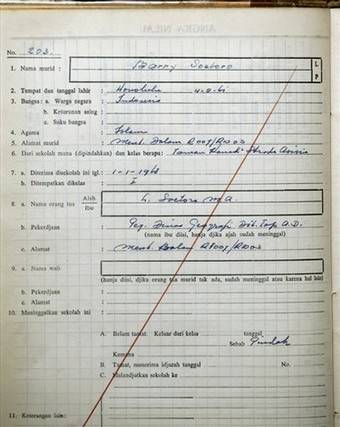 ANGKA NILAI
No. 203.
1. Nama murid : Barry Soetoro L P
2. Tempat dan tanggal lahir : Honolulu 4-8-61
3. Bangsa : a. Warga negara : Indonesia
b. Keturunan asing :
c. Suku bangsa :
4. Agama : Islam
5. Alamat murid : Ment. Dalam R007/R003
6. Dari sekolah mana (dipindahkan) dan kelas berapa :
7. a. Diterima disekolah ini tgl. : 1-1-1968
b. Ditempatkan dikelas : I
8. a. Nama orang tua Ajah ibu : L. Soetoro M.A.
b. Pekerdjaan : Peg. Dinas Geografi Dit. Top. A.D.
(nama ibu diisi, hanja djika ajah sudah meninggal)
c. Alamat : Ment. Dalam R007/R003
9. a. Nama wali :
(hanja diisi, djika orang tua murid tak ada, sudah meninggal atau karena hal lain)
b. Pekerdjaan :
c. Alamat :
10. Meninggalkan sekolah ini :
A. Belum tamat. Keluar dari kelas tanggal
Sebab Pindah
Kemana
B. Tamat, menerima idjazah tanggal No.
C. Melandjutkan sekolah ke
11. Keterangan lain :